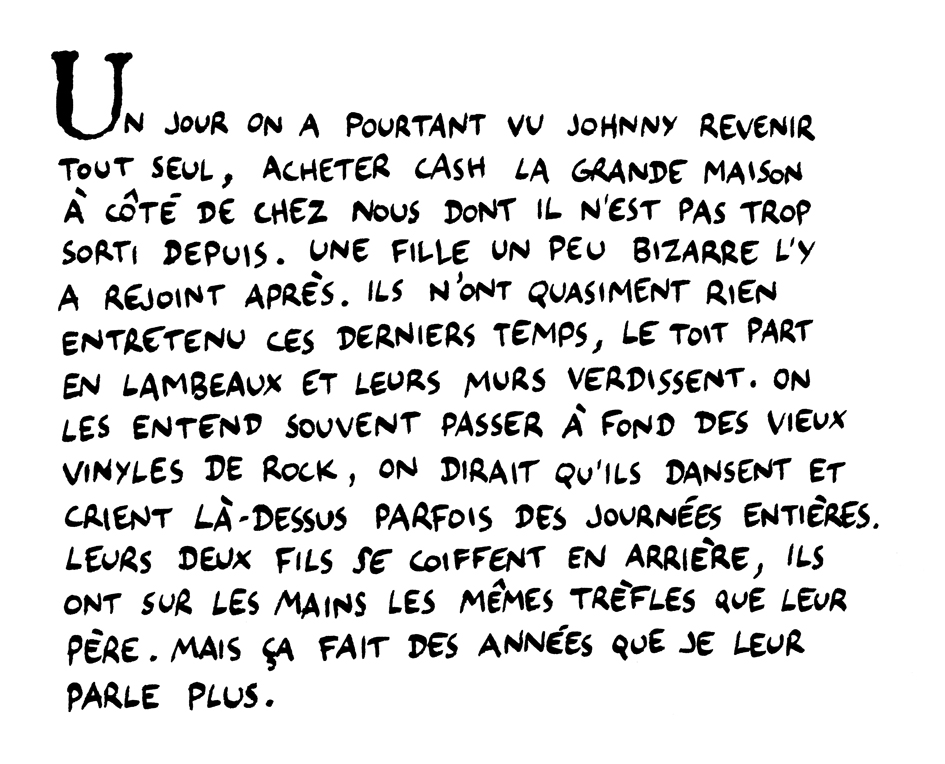 UN JOUR ON A POURTANT VU JOHNNY REVENIR
TOUT SEUL, ACHETER CASH LA GRANDE MAISON
À CÔTÉ DE CHEZ NOUS DONT IL N'EST PAS TROP
SORTI DEPUIS. UNE FILLE UN PEU BIZARRE L'Y
A REJOINT APRÈS. ILS N'ONT QUASIMENT RIEN
ENTRETENU CES DERNIERS TEMPS, LE TOIT PART
EN LAMBEAUX ET LEURS MURS VERDISSENT. ON
LES ENTEND SOUVENT PASSER À FOND DES VIEUX
VINYLES DE ROCK, ON DIRAIT QU'ILS DANSENT ET
CRIENT LÀ-DESSUS PARFOIS DES JOURNÉES ENTIÈRES.
LEURS DEUX FILS SE COIFFENT EN ARRIÈRE, ILS
ONT SUR LES MAINS LES MÊMES TRÈFLES QUE LEUR
PÈRE. MAIS ÇA FAIT DES ANNÉES QUE JE LEUR
PARLE PLUS.